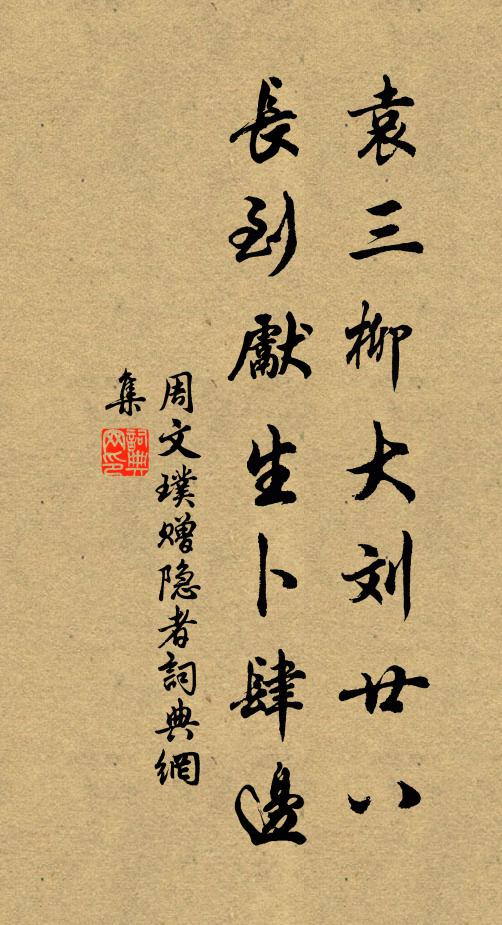 袁三柳大刘廿八
長到獻生卜肆邊
周文璞赠隐者詞典網
集
詞典网印